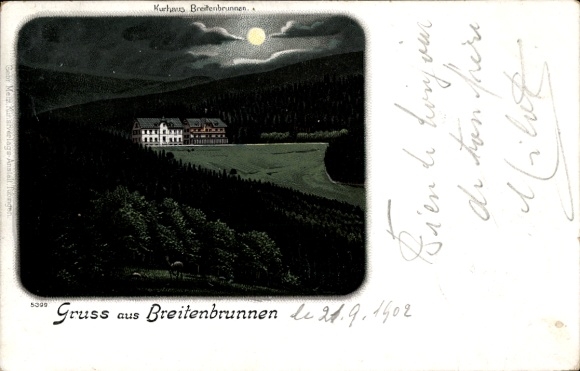 Kurhaus Breitenbrunnen.
5399
Gruss aus Breitenbrunnen
le 21.9.1902
Bien le bonjour
de ton frère